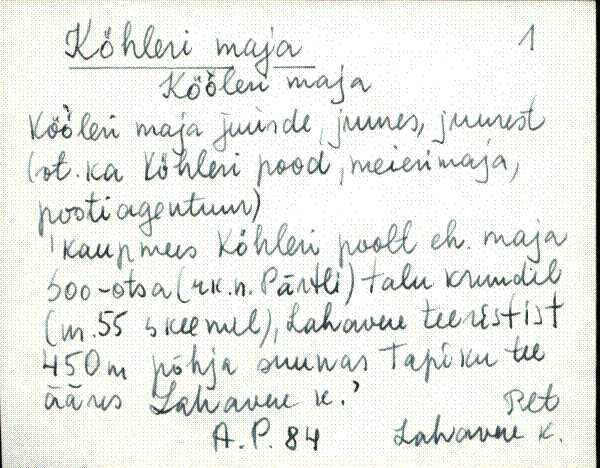 Köhleri maja 1
Kööleri maja
Kööleri maja juurde, juures, juurest
(vt. ka Köhleri pood, meierimaja,
postiagentuur)
'Kaupmees Köhleri poolt eh. maja
Soo-otsa (rk.n. Pärtli) talu krundil
(nr. 55 skeemil), Lahavere teeristist
450m põhja suunas Tapiku tee
ääres Lahavere k.'
Plt
A.P. 84 Lahavere k.